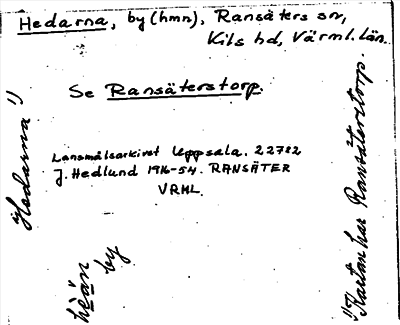 Hedarna, by (hmn), Ransäters sn,
Kils hd, Värml. län.
Se Ransäterstorp.
Lansmålsarkivet Uppsala. 22782
J. Hedlund 1916-54. RANSÄTER
VRML.
1) Hedarna 1)
hèän
by
1) Kartan har Ransäterstorp.